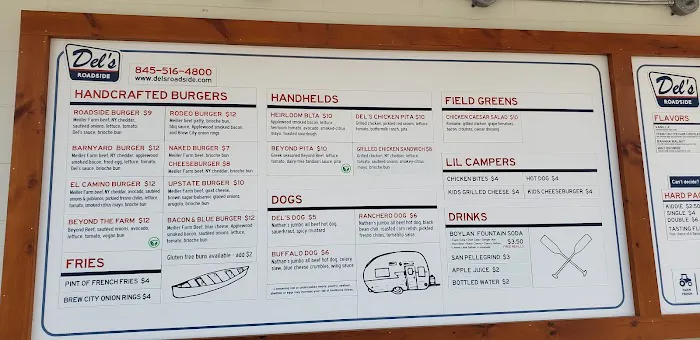 Del's
ROADSIDE
845-516-4800
www.delsroadside.com
HANDCRAFTED BURGERS
ROADSIDE BURGER $9
Meiller Farm beef, NY cheddar,
sautéed onions, lettuce, tomato
Del's sauce, brioche bun
BARNYARD BURGER $12
Meiller Farm beef, NY cheddar, applewood
smoked bacon, fried egg, lettuce, tomato,
Del's sauce, brioche bun
EL CAMINO BURGER $12
Meiller Farm beef, NY cheddar, avocado, sautéed
onions & poblanos, pickled fresno chilis, lettuce,
tomato, smoked citrus mayo, brioche bun
BEYOND THE FARM $12
Beyond Beef, sautéed onions, avocado,
lettuce, tomato, vegan bun
RODEO BURGER $12
Meiller beef patty, brioche bun,
bbq sauce, Applewood smoked bacon,
and Brew City onion rings
NAKED BURGER $7
Meiller Farm beef, brioche bun
CHEESEBURGER $8
Meiller Farm beef, NY cheddar, brioche bun
UPSTATE BURGER $10
Meiller Farm beef, goat cheese,
brown sugar balsamic glazed onions,
arugula, brioche bun
BACON & BLUE BURGER $12
Meiller Farm beef, blue cheese, Applewood
smoked bacon, sautéed onions, lettuce,
tomato, brioche bun
Gluten free buns available - add $2
FRIES
PINT OF FRENCH FRIES $4
BREW CITY ONION RINGS $4
HANDHELDS
HEIRLOOM BLTA $10
Applewood smoked bacon, lettuce,
heirloom tomato, avocado, smoked citrus
mayo, toasted sourdough
BEYOND PITA $10
Greek seasoned Beyond Beef, lettuce,
tomato, dairy-free tandoori sauce, pita
DEL'S CHICKEN PITA $10
Grilled chicken, pickled red onions, lettuce,
tomato, buttermilk ranch, pita
GRILLED CHICKEN SANDWICH $8
Grilled chicken, NY cheddar, lettuce,
tomato, sautéed onions, smokey citrus
mayo, brioche bun
DOGS
DEL'S DOG $5
Nathan's jumbo all beef hot dog,
sauerkraut, spicy mustard
BUFFALO DOG $6
Nathan's jumbo all beef hot dog, celery
slaw, blue cheese crumbles, wing sauce
RANCHERO DOG $6
Nathan's jumbo all beef hot dog, black
bean chili, roasted corn relish, pickled
fresno chilis, tomatillo salsa
FIELD GREENS
CHICKEN CAESAR SALAD $10
Romaine, grilled chicken, grape tomatoes,
bacon, croutons, caesar dressing
LIL CAMPERS
CHICKEN BITES $4
HOT DOG $4
KIDS GRILLED CHEESE $4
KIDS CHEESEBURGER $4
DRINKS
BOYLAN FOUNTAIN SODA
$3.50
FREE REFILLS
SAN PELLEGRINO $3
APPLE JUICE $2
BOTTLED WATER $2
Del's
ROADSIDE
FLAVORS
VANILLA
Can't decide?
HARD PAC
KIDDIE $2.50
SINGLE $4
DOUBLE $6
TASTING FL